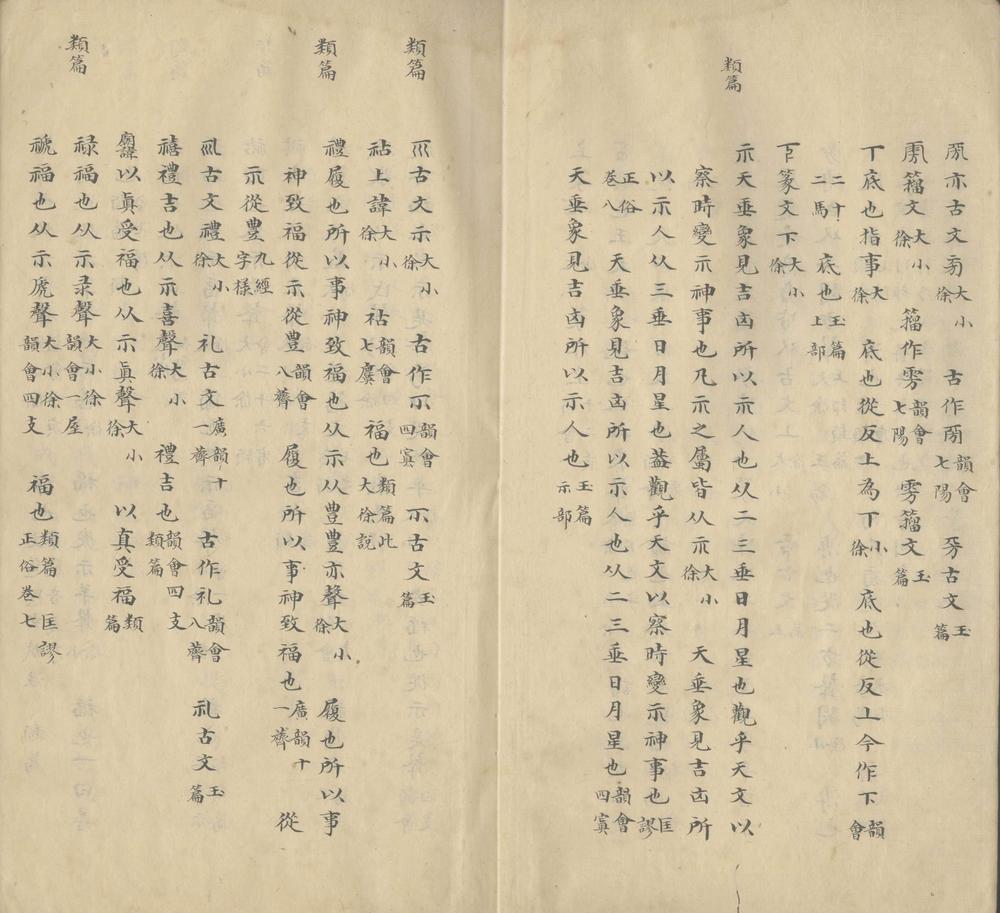 類篇
亦古文㫄大小徐　古作韻會七陽　㝑古文玉篇
籀文大小徐　籀作雱韻會七陽　雱籀文玉篇
丅底也指事大徐　底也從反丄為丅小徐　底也從反丄今作下韻會
二十二馬　底也玉篇上部
篆文下大小徐
示天垂象見吉凶所以示人也从二三垂日月星也觀乎天文以
察時變示神事也凡示之屬皆从示大小徐　天垂象見吉凶所
以示人从三垂日月星也葢觀乎天文以察時變示神事也匡謬
正俗卷八　天垂象見吉凶所以示人也从二三垂日月星也韻會四寘
天垂象見吉凶所以示人也玉篇示部
類篇
古文示大小徐　古作韻會四寘　古文玉篇
祜上諱大小徐　祜韻會七麌　福也類篇此大徐說
類篇
禮履也所以事神致福也从示从豊豊亦聲大小徐　履也所以事
神致福從示從豊韻會八薺　履也所以事神致福也廣韻十一薺　從
示從豊九經字樣
古文禮大小徐　礼古文廣韻十一薺　古作礼韻會八薺　礼古文玉篇
禧禮吉也从示喜聲大小徐　禮吉也韻會四支類篇
廟諱以眞受福也从示眞聲大小徐　以真受福類篇
類篇
祿福也从示录聲大小徐韻會一屋
禠福也从示虒聲大小徐韻會四支　福也類篇匡謬正俗卷七